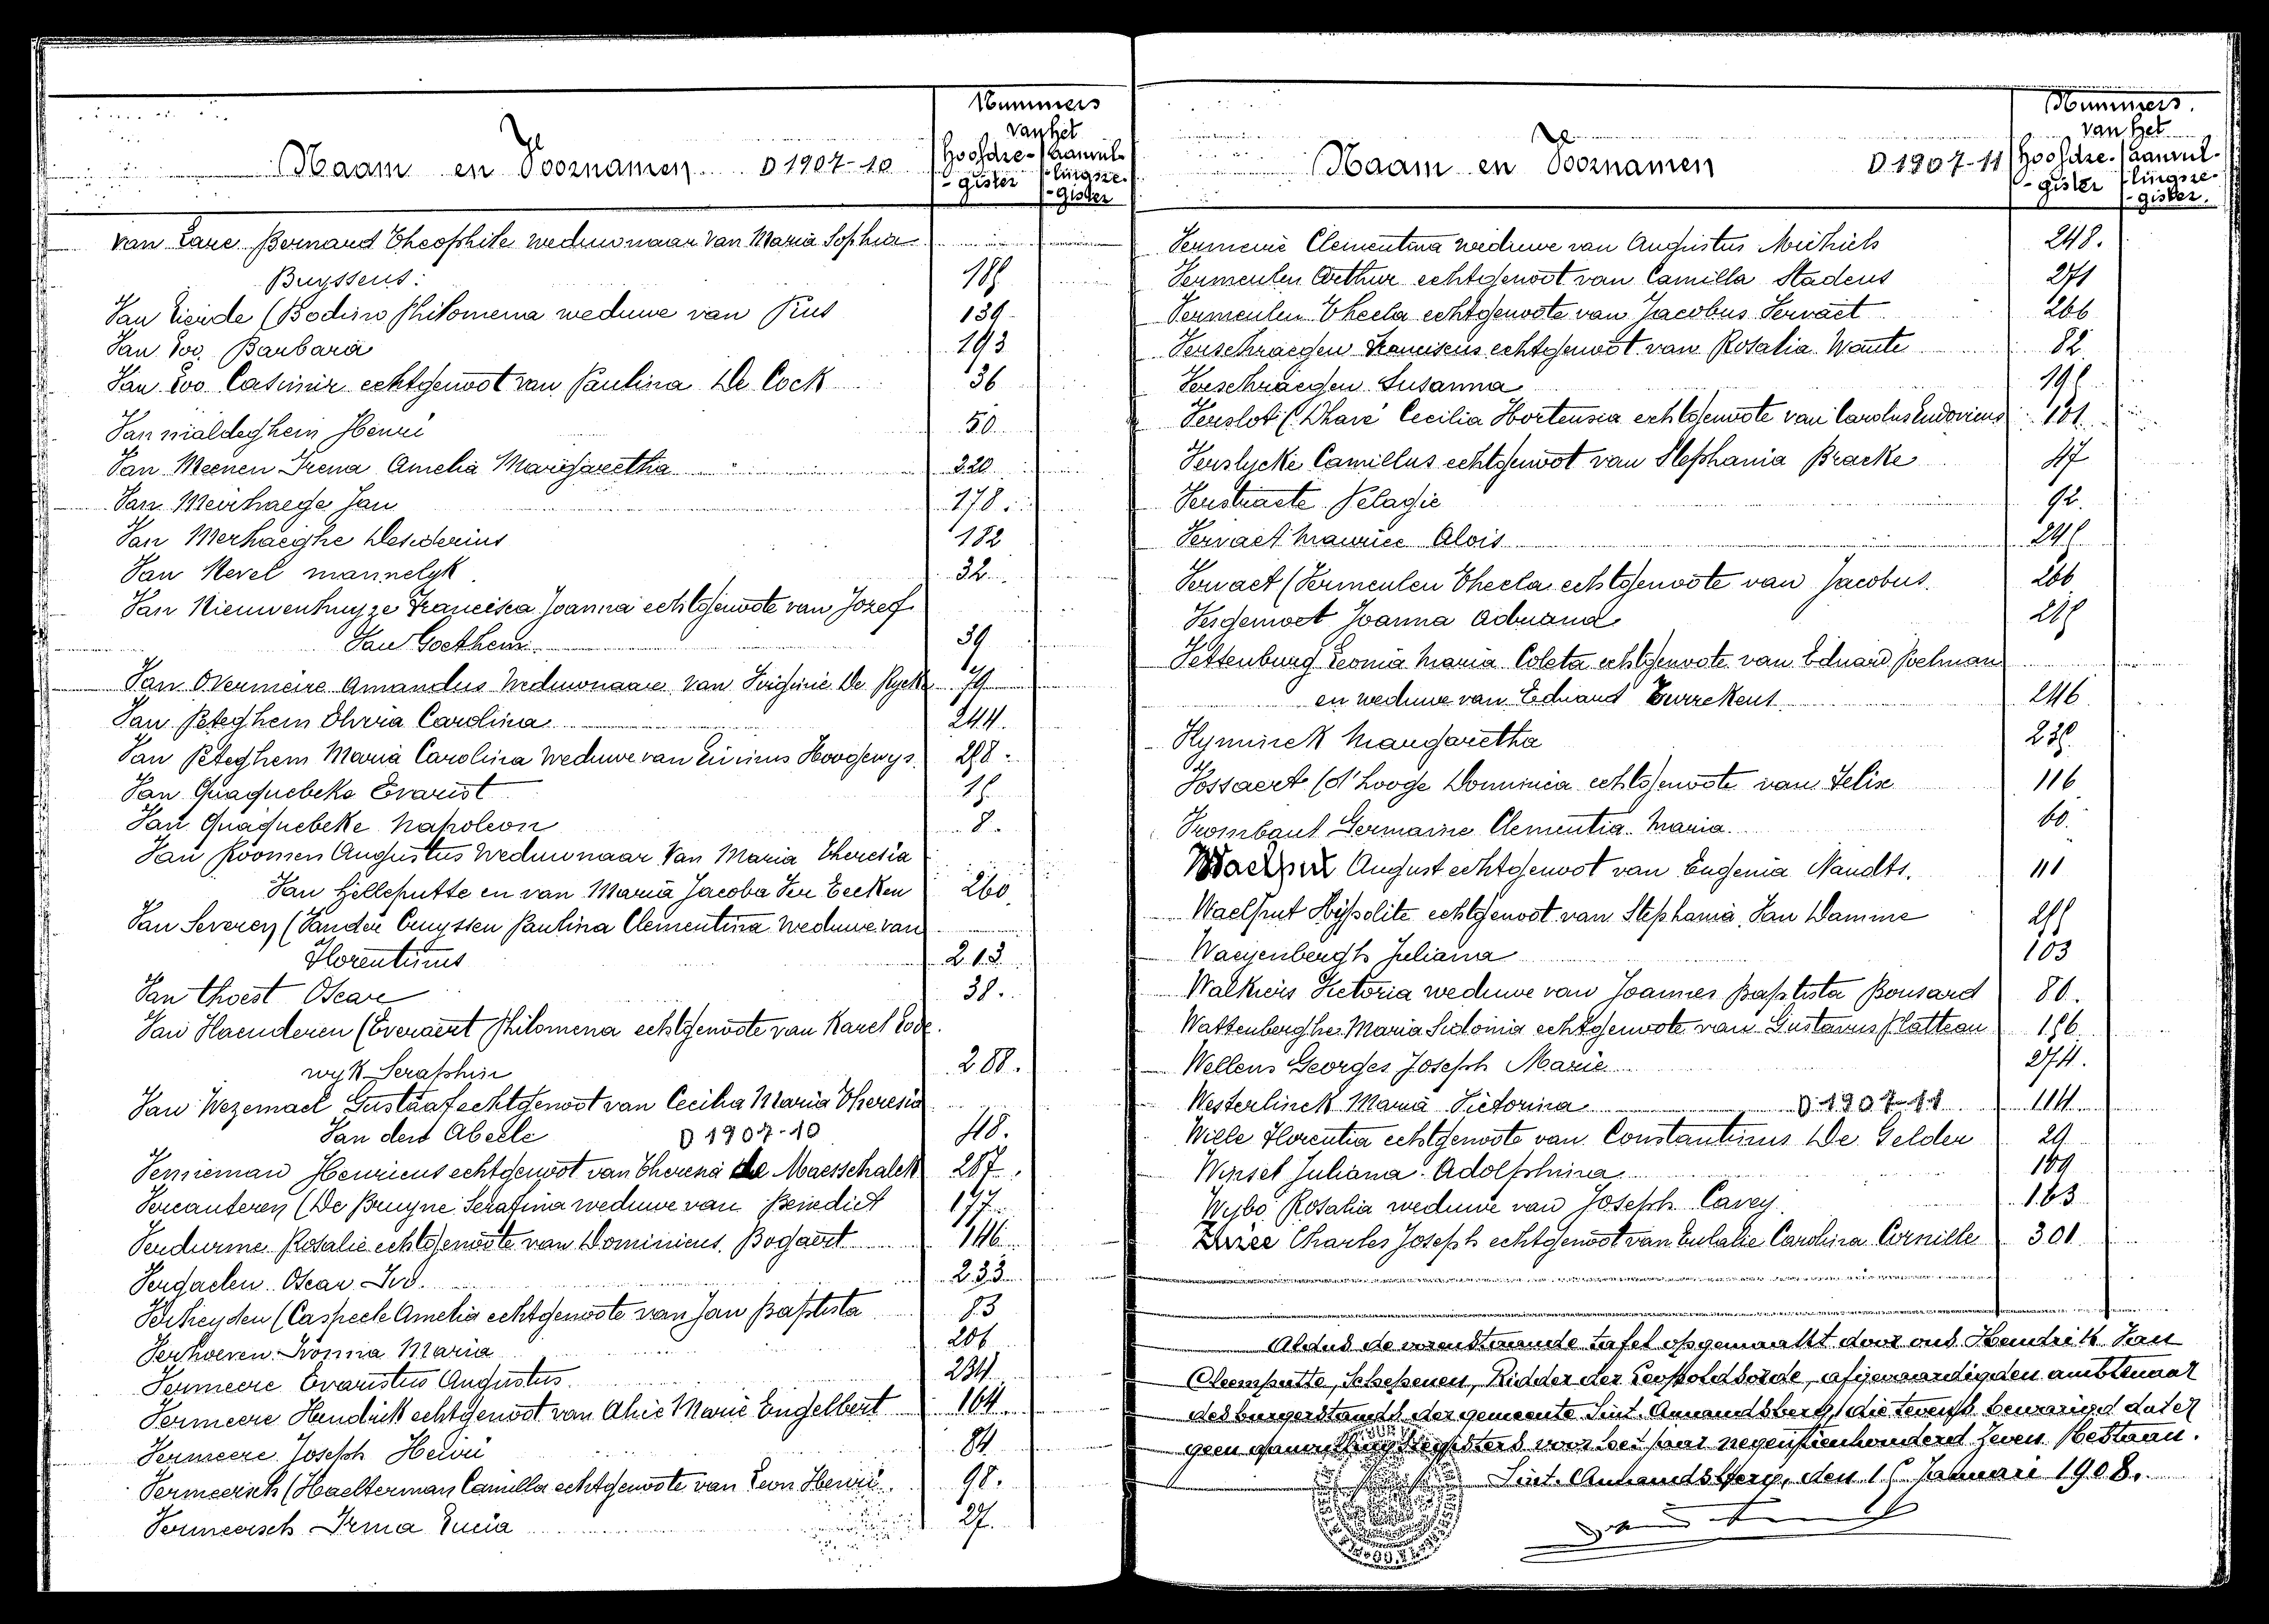 Naam en Voornamen D 1907-10
Nummers
van het
Hoofdre-
-gister
Aanvul-
lingsre-
-gister
Van Lare Bernard Theophile weduwnaar van Maria Sophia
Buyssens. 185
Van Lierde (Bodein Philomena weduwe van Pius 139
Van Loo Barbara 193
Van Loo Casimir echtgenoot van Paulina De Cock 36
Van maldeghem Henri 50
Van Meenen Irena Amelia Margaretha 220
Van Meirhaege Jan 178.
Van Merhaeghe Desiderius 182
Van Nevel mannelyk. 32
Van Nieuwenhuyze Francisca Joanna echtgenoote van Jozef
Van Goethem 39
Van Overmeire Amandus Weduwnaar van Virginie De Rycke 79
Van Peteghem Maria Carolina 244.
Van Peteghem Maria Carolina Weduwe van Livinus Hoogewys. 258.
Van Quaquebeke Evarist 15
Van Quaquebeke Napoleon 8.
Van Roomen Augustus Weduwnaar Van Maria Theresia
Van Hilleputte en van Maria Jacoba Ver Eecken 260.
Van Severen (Vander Cruyssen Paulina Clementina Weduwe van
Florentinus 213
Van thoest Oscar 38.
Van Vlaenderen (Everaert Philomena echtgenoote van Karel Lode-
wyk Seraphin 288.
Van Wezemael Gustaaf echtgenoot van Cecilia Maria Theresia
Van den Abeele D 1907-10 48.
Venieman Henricus echtgenoot van Theresia de Maesschalck 287.
Vercauteren (De Bruyne Serafina weduwe van Benedict 177
Verdurme Rosalie echtgenoote van Dominicus Bogaert 146
Vergaelen Oscar Ivo. 233
Verheyden (Caspeele Amelia echtgenoote van Jan Baptista 53
Verhoeven Ivonna Maria 206
Vermeere Evaristus Augustus. 234
Vermeere Hendrik echtgenoot van Alice Marie Engelbert 164
Vermeere Joseph Henri 84
Vermeersch (Haelterman Camilla echtgenoote van Leon Henri. 98.
Vermeersch Irma Lucia 27.
Naam en Voornamen D 1907-11
Nummers.
van het
Hoofdre-
-gister
Aanvul-
lingsre-
-gister.
Vermeire Clementina weduwe van Augustus Michiels 248.
Vermeulen Arthur echtgenoot van Camilla Stadeus 271
Vermeulen Thecla echtgenoote van Jacobus Vervaet 266
Verschraegen Franciscus echtgenoot van Rosalia Waute 82
Verschraegen Susanna 195
Verslot (Dhave Cecilia Hortensia echtgenoote van Carolus Ludovicus 101
Verslycke Camillus echtgenoot van Stephania Bracke 47
Verstraete Pelagie 92.
Vervaet Maurice Alois 245
Vervaet (Vermeulen Thecla echtgenoote van Jacobus. 266
Vesdemoet Joanna Adriana 215
Vettenburg Leonia Maria Coleta echtgenoote van Eduard Poelman
en weduwe van Eduard Eurrekens 246
Vlyminck Margaretha 235
Vossaert (D'hooge Dominica echtgenoote van Felix 116
Vrombaut Germaine Clementia Maria. 60.
Waelput August echtgenoot van Eugenia Naudts. 111
Waelput Hippolite echtgenoot van Stephania Van Damme 255
Waeyenbergh Juliana 103
Walkiers Victoria weduwe van Joannes Baptista Bousard 80.
Wattenberghe Maria Sidonia echtgenoote van Gustavus Platteau 156
Wellens Georges Joseph Marie 274.
Westerlinck Maria Victorina D 1907-11 114
Wille Florentia echtgenoote van Constantinus De Gelder 29
Winsel Juliana Adolphina 169
Wybo Rosalia weduwe van Joseph Carey. 163
Charles Joseph echtgenoot van Eulalie Carolina Cornille 301
Aldus de vorenstaande tafel opgemaakt door ons Hendrik Van
Cleemputte, Schepenen, Ridder der Leopoldsorde, afgevaardigden ambtenaar
des burgerstands der gemeente Sint. Amandsberg, die tevens bewarigd dat er
geen aanvullingsregisters voor het jaar negentienhonderd zeven bestaan.
Sint. Amandsberg, den 15 Januari 1908.